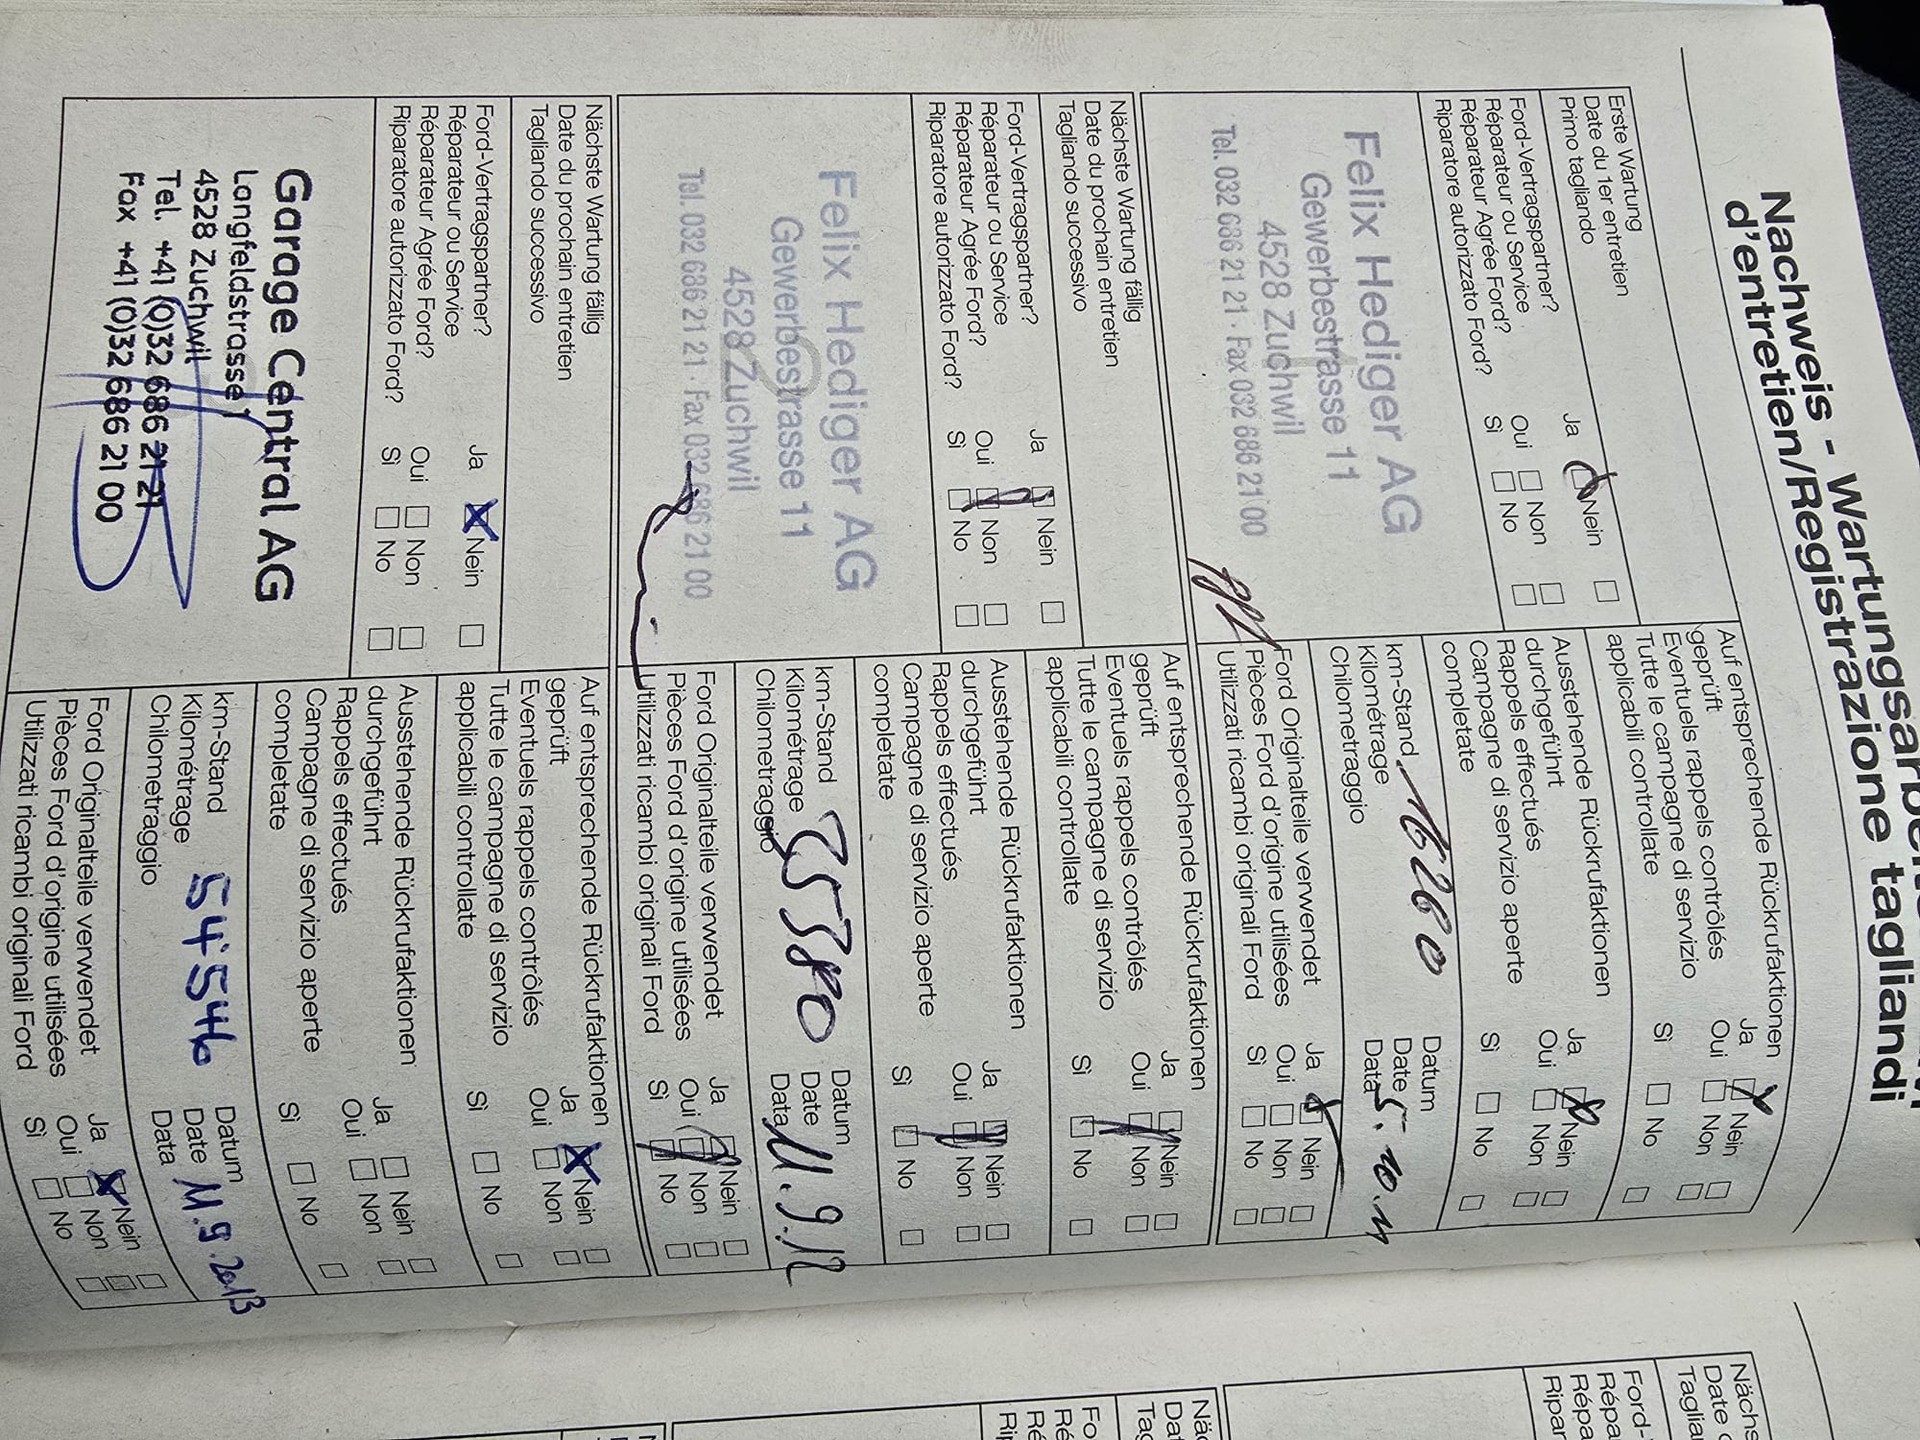 Nachweis - Wartungsarbeiten
d'entretien/Registrazione tagliandi
Erste Wartung
Date du 1er entretien
Primo tagliando
Ford-Vertragspartner? Ja Nein
Réparateur ou Service
Réparateur Agrée Ford? Oui Non
Riparatore autorizzato Ford? Sì No
Felix Hediger AG
Gewerbestrasse 11
4528 Zuchwil
Tel. 032 686 21 21 · Fax 032 686 21 00
Auf entsprechende Rückrufaktionen Ja Nein
geprüft
Eventuels rappels contrôlés Oui Non
Tutte le campagne di servizio Sì No
applicabili controllate
Ausstehende Rückrufaktionen Ja Nein
durchgeführt
Rappels effectués Oui Non
Campagne di servizio aperte Sì No
completate
km-Stand Datum
Kilométrage 16260 Date 5.10.11
Chilometraggio Data
Ford Originalteile verwendet Ja Nein
Pièces Ford d'origine utilisées Oui Non
Utilizzati ricambi originali Ford Sì No
Nächste Wartung fällig
Date du prochain entretien
Tagliando successivo
Ford-Vertragspartner? Ja Nein
Réparateur ou Service
Réparateur Agrée Ford? Oui Non
Riparatore autorizzato Ford? Sì No
Felix Hediger AG
Gewerbestrasse 11
4528 Zuchwil
Tel. 032 686 21 21 · Fax 032 686 21 00
Auf entsprechende Rückrufaktionen Ja Nein
geprüft
Eventuels rappels contrôlés Oui Non
Tutte le campagne di servizio Sì No
applicabili controllate
Ausstehende Rückrufaktionen Ja Nein
durchgeführt
Rappels effectués Oui Non
Campagne di servizio aperte Sì No
completate
km-Stand Datum
Kilométrage 35380 Date 11.9.12
Chilometraggio Data
Ford Originalteile verwendet Ja Nein
Pièces Ford d'origine utilisées Oui Non
Utilizzati ricambi originali Ford Sì No
Nächste Wartung fällig
Date du prochain entretien
Tagliando successivo
Ford-Vertragspartner? Ja Nein
Réparateur ou Service
Réparateur Agrée Ford? Oui Non
Riparatore autorizzato Ford? Sì No
Garage Central AG
Langfeldstrasse 1
4528 Zuchwil
Tel. +41 (0)32 686 21 21
Fax +41 (0)32 686 21 00
Auf entsprechende Rückrufaktionen Ja Nein
geprüft
Eventuels rappels contrôlés Oui Non
Tutte le campagne di servizio Sì No
applicabili controllate
Ausstehende Rückrufaktionen Ja Nein
durchgeführt
Rappels effectués Oui Non
Campagne di servizio aperte Sì No
completate
km-Stand Datum
Kilométrage 54'546 Date 11.9.2013
Chilometraggio Data
Ford Originalteile verwendet Ja Nein
Pièces Ford d'origine utilisées Oui Non
Utilizzati ricambi originali Ford Sì No